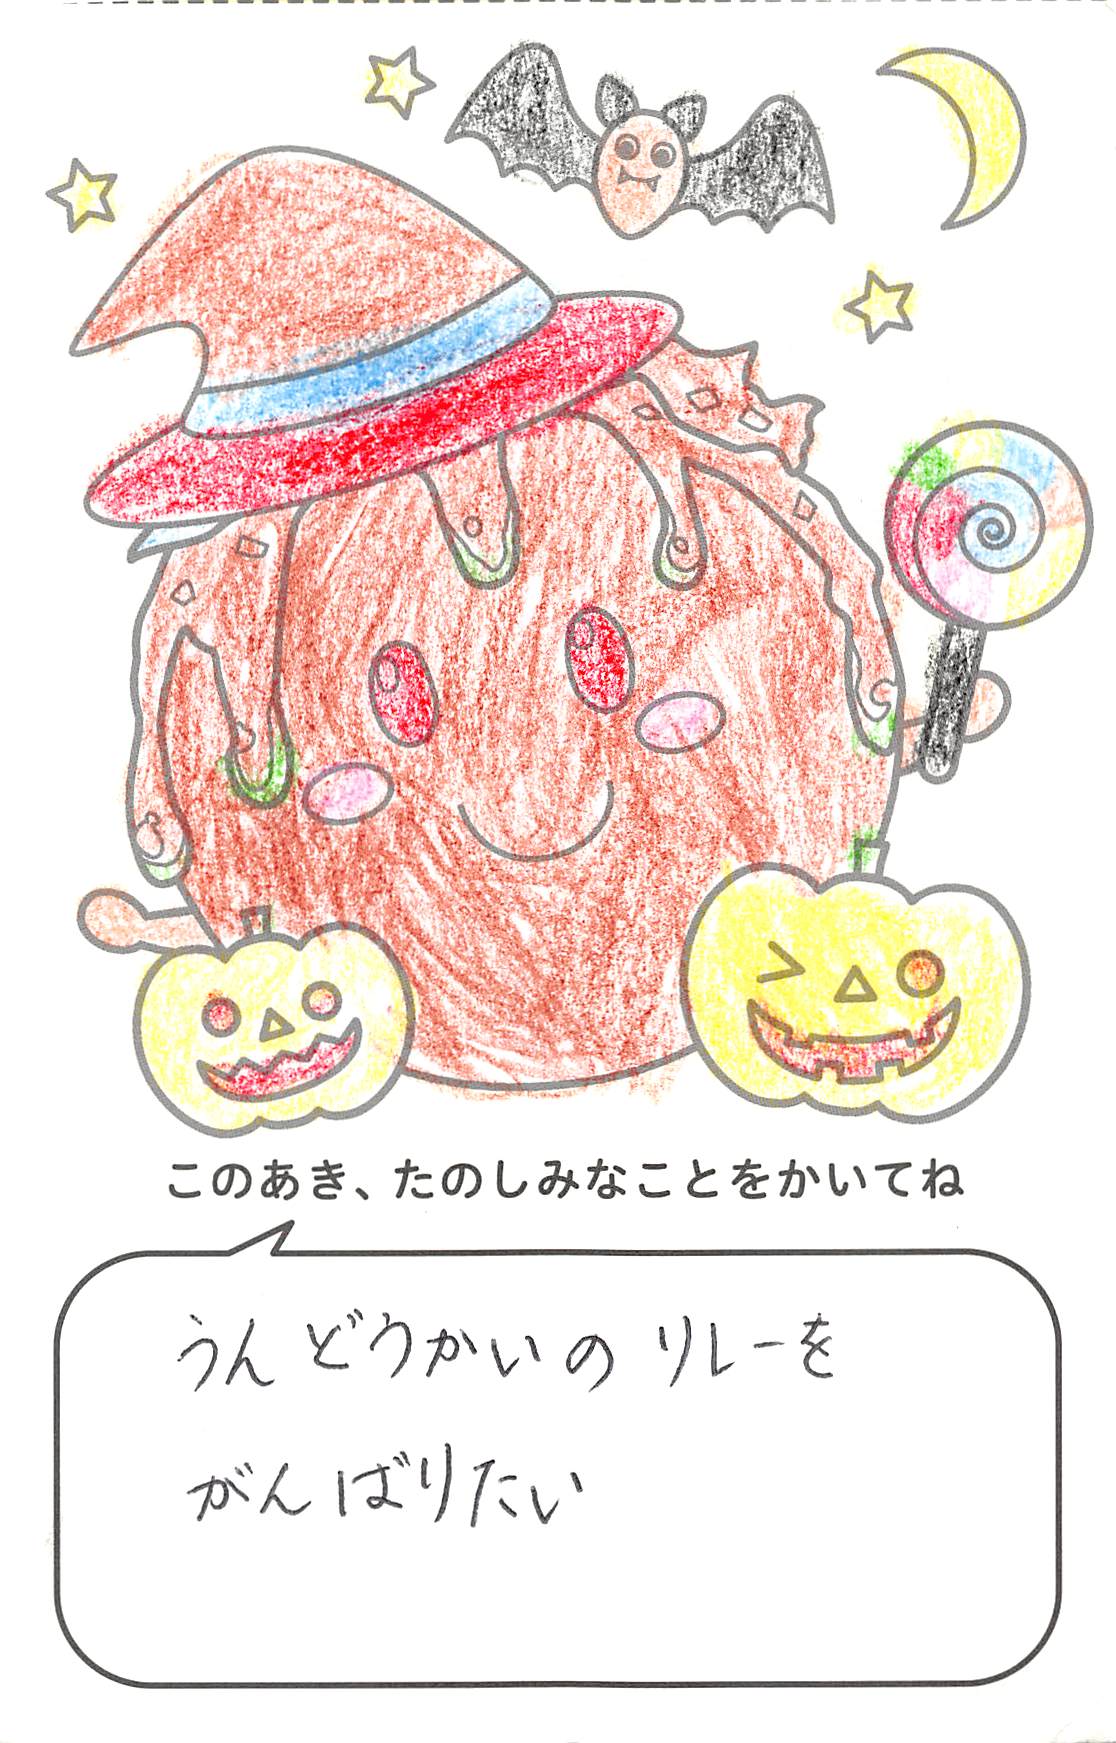 このあき、たのしみなことをかいてね
うんどうかいのリレーを
がんばりたい